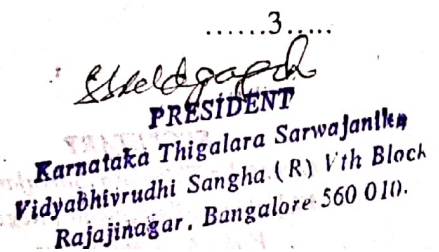 ......3.....
PRESIDENT
Karnataka Thigalara Sarwajanika
Vidyabhivrudhi Sangha (R) Vth Block
Rajajinagar, Bangalore-560 010.